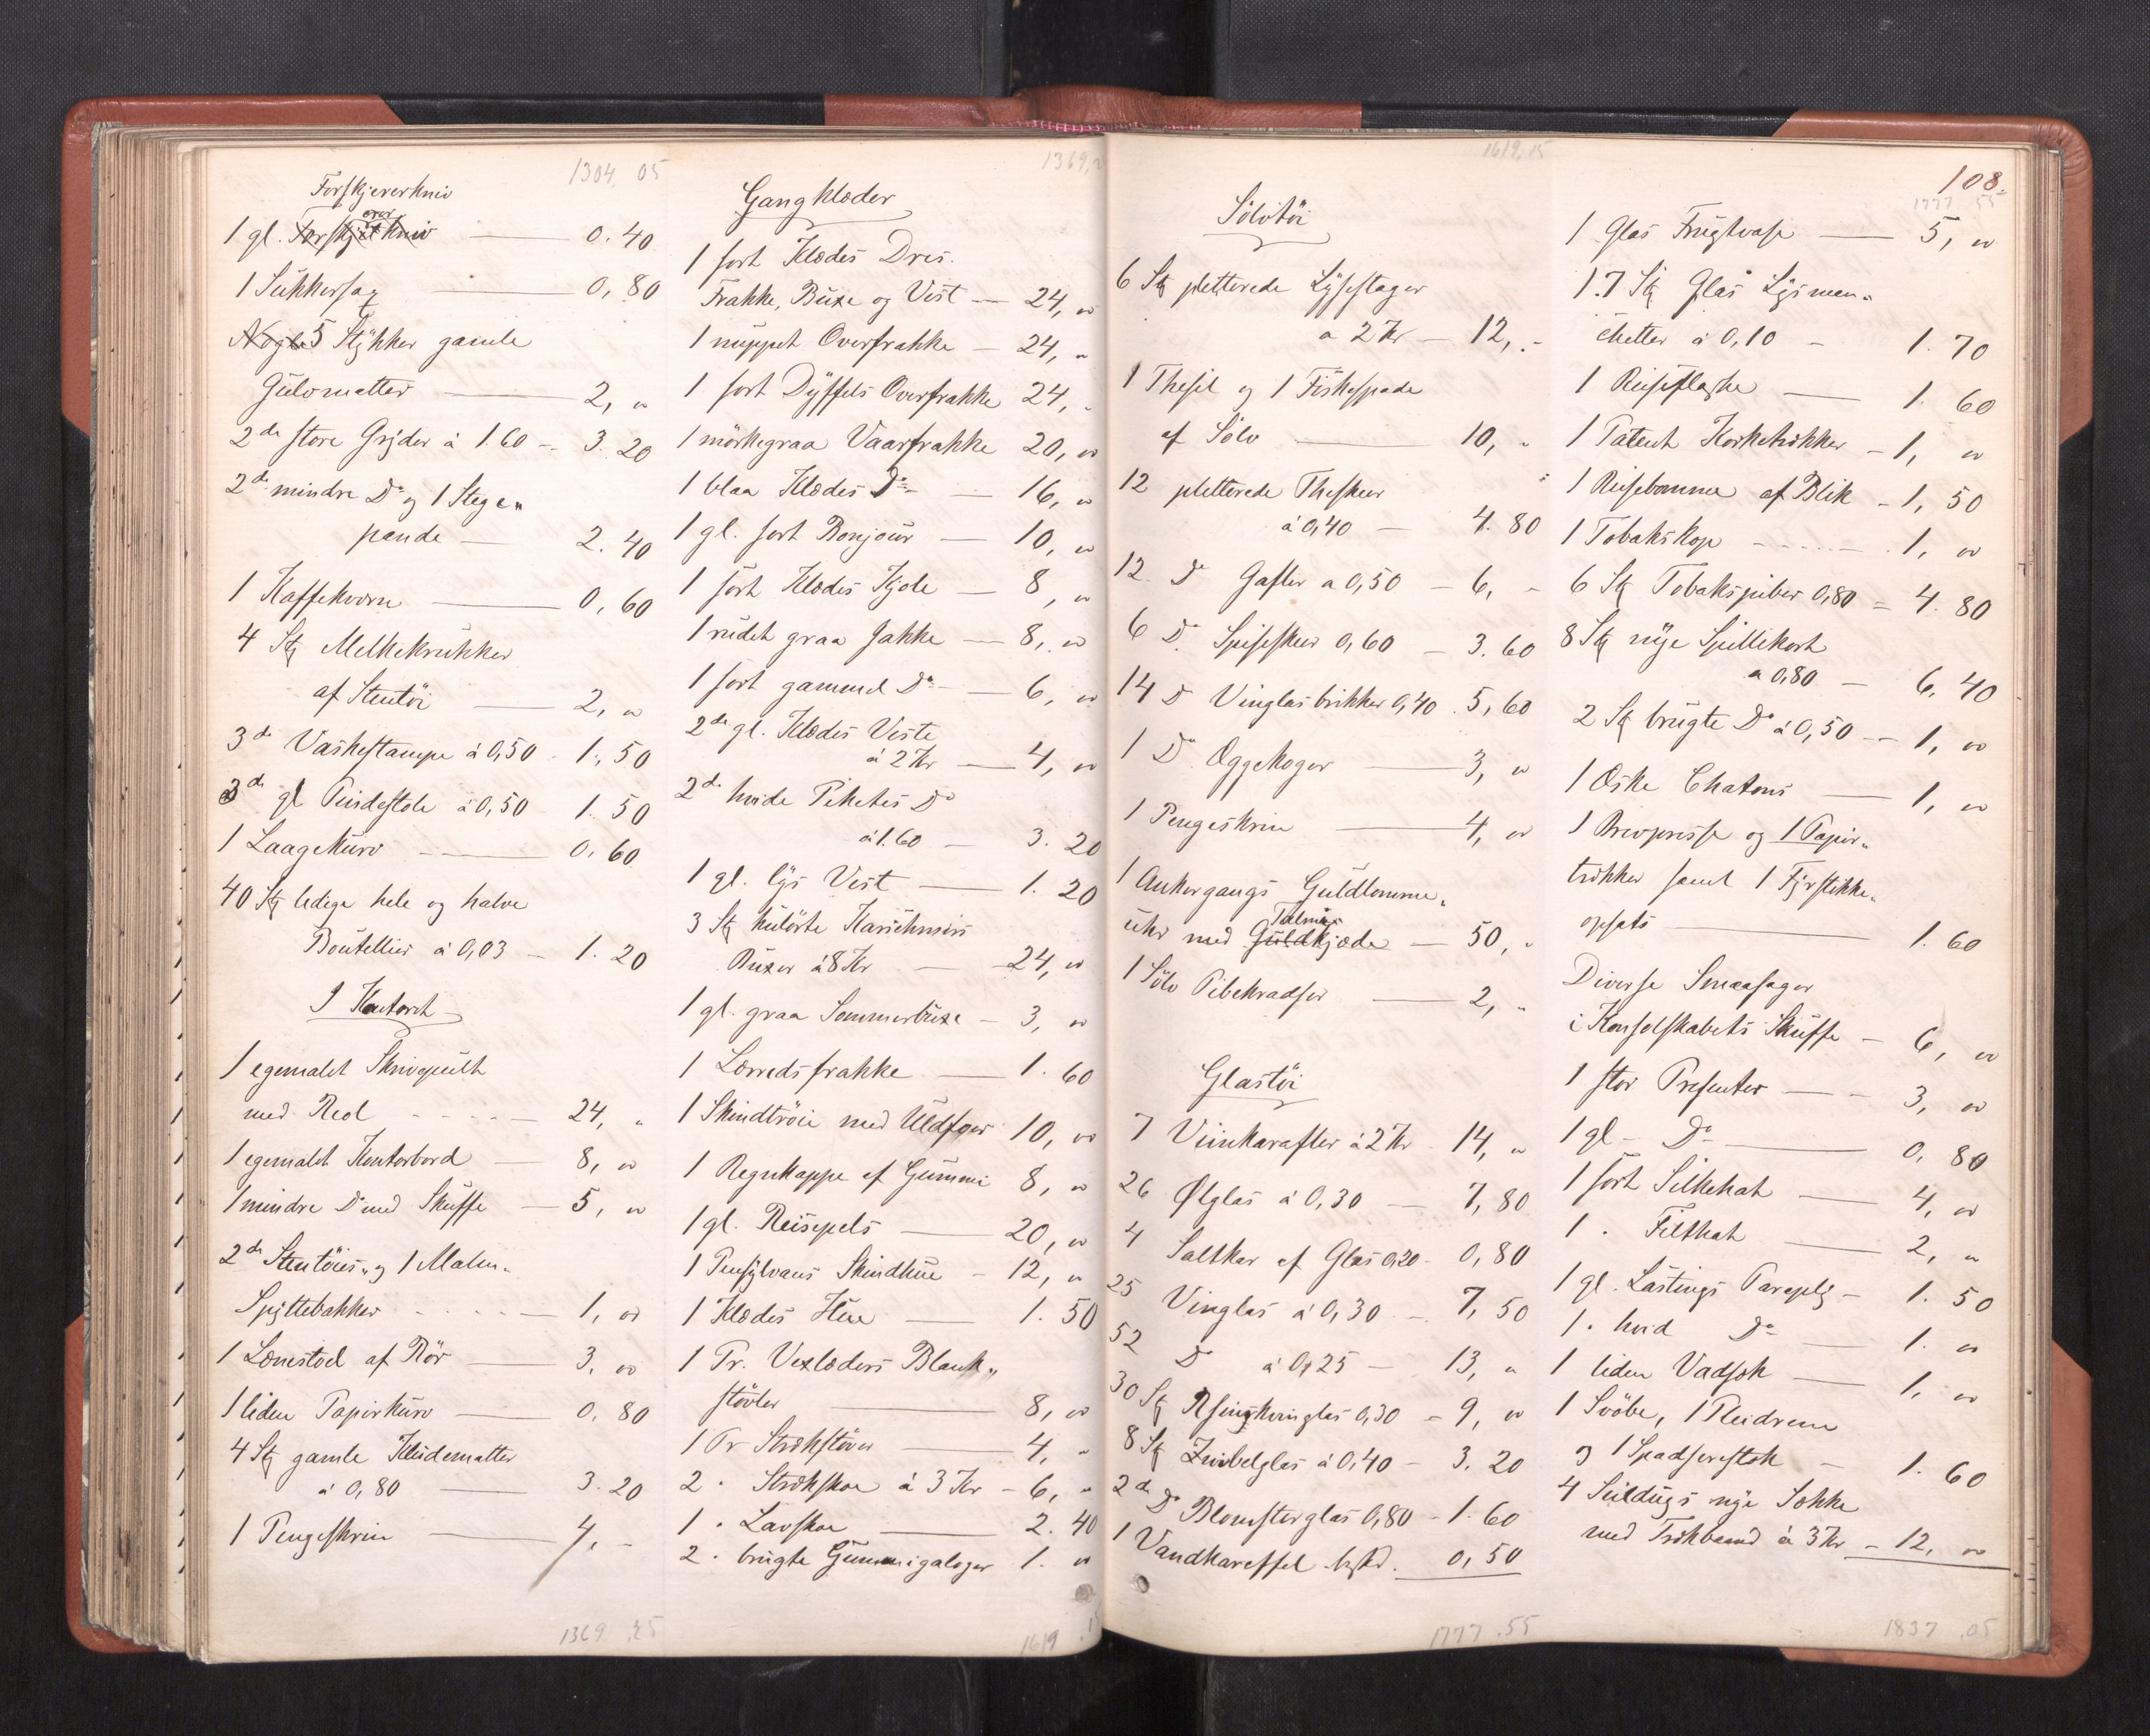 1304, 05
Forskjererkniv
1 gl. Forskjærkniv — 0.40
1 Sukkersag — 0,80
Nogle 5 Stÿkker gamle
Gulvmatter — 2, "
2de store Grÿder à 1.60 — 3.20
2de mindre Do og 1 Stege„
pande — 2.40
1 Kaffekværn — 0,60
4 Stk Melkekrukker
af Stentöi — 2, "
3de Vaskestampe à 0,50 - 1,50
3de gl Pindestole à 0,50 1.50
1 Laagekurv — 0.60
40 Stk ledige hele og halve
Bouteiller à 0,03 — 1.20
I Kontoret
1 egemalet Skrivepult
med Reol - - - - 24, "
1 egemalet Kontorbord — 8, "
1 mindre Do med Skuffe — 5, "
2de Stentöies„ og 1 Malm„
Spÿttebakker - - - - 1, "
1 Lænestoel af Rör — 3, "
1 liden Papirkurv — 0,80
4 Stk gamle Kludematter
à 0,80 — 3.20
1 Pengeskrin — 4, -
1369.25
1369,2
Gangklæder
1 sort Klædes Dres.
Frakke, Buxe og Vest — 24, "
1 nuppet Overfrakke — 24, "
1 sort Dÿffels Overfrakke 24, "
1 mörkegraa Vaarfrakke 20, "
1 blaa Klædes Do — 16, "
1 gl. sort Bonjour — 10, "
1 sort Klædes Kjole — 8, "
1 rudet graa Jakke — 8, "
1 sort gammel Do — 6, "
2de gl. Klædes Veste
à 2 Kr — 4, "
2de hvide Pikekes Do
à 1.60 — 3.20
1 gl. lÿs Vest — 1.20
3 Stk kulörte
Buxer à 8 Kr — 24, "
1 gl. graa Sommerbuxe — 3, "
1 Lærredsfrakke — 1.60
1 Skindtröie med Uldfoer 10, "
1 Regnkappe af Gummi 8, "
1 gl. Reisepels — 20, "
1 Pensÿlvans Skindhue — 12, "
1 Klædes Hue — 1.50
1 Pr. Vexlæders Blank„
stövler — 8, "
1 Pr Strækstöver — 4, "
2 " Strækskoe à 3 Kr — 6, "
1 " Lavskoe — 2.40
2 " brugte Gummigaloger 1. "
1619.1
1619,15
Sölvtöi
6 Stk pletterede Lÿsestager
a 2 Kr — 12, -
1 Thesil og 1 Fiskespade
af Sölv — 10, "
12 pletterede Theskeer
à 0,40 — 4.80
12 Do Gafler a 0,50 — 6, -
6 Do Spiseskeer 0,60 — 3.60
14 Do Vinglasbrikker 0,40 5,60
1 Do Æggekoger — 3, "
1 Pengeskrin — 4, "
1 Ankergangs Guldlomme„
Talmi
uhr med Guldkjæde — 50, "
1 Sölv Pibekradser — 2, "
Glastöi
7 Viinkarafler à 2 Kr 14, "
26 Ølglas à 0,30 — 7,80
4 Saltkar af Glas 0,20 0,80
25 Vinglas à 0,30 — 7,50
52 Do à 0,25 — 13, "
30 Stk Rhinskvinglas 0,30 — 9, "
8 Stk Zwibelglas à 0,40 — 3.20
2de Do Blomsterglas 0,80 - 1.60
1 Vandkareffel 0,50
1777.55
108.
1777 55
1 Glas Frugtvase — 5, "
17 Stk Glas Lÿsman„
chetter à 0,10 — 1.70
1 Reiseflaske — 1.60
1 Patent Korketrækker — 1, "
1 Reisebomme af Blik — 1,50
1 Tobakskop - - - - 1, "
6 Stk Tobakspiber 0,80 = 4.80
8 Stk nÿe Spillekort
a 0,80 — 6,40
2 Stk brugte Do à 0,50 — 1, "
1 Æske Chatons — 1, "
1 Brevpresse og 1 Papir„
trækker samt 1 Fÿrstikke„
opsats — 1.60
Diverse Smaasager
i Konsolskabets Skuffe — 6, "
1 stor Presenter — 3, "
1 gl - Do — 0,80
1 sort Silkehat — 4, "
1 " Filthat — 2, "
1 gl. Lastings Paraplÿ — 1.50
1 " hvid Do — 1. "
1 liden Vadsæk — 1, "
1 Svöbe, 1 Pleidrem
og 1 Spadserestok — 1.60
4 Seildugs nÿe Sække
med Trækbaand à 3 Kr — 12, "
1837.05